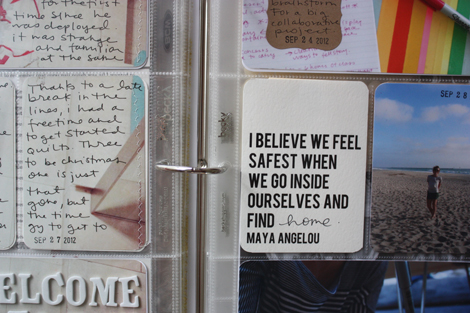 for the first
time since he
was deployed
it was strange
and familiar
at the same
Thanks to a late
break in the
lines, I had a
freetime and
to get started
quilts. Three
to be christmas
she is just
that
gone, but
the time
gy to get to
SEP 27 2012
WELCOME
brainstorm
for a big
collaborative
project.
SEP 24 2012
I BELIEVE WE FEEL
SAFEST WHEN
WE GO INSIDE
OURSELVES AND
FIND home.
MAYA ANGELOU
SEP 28